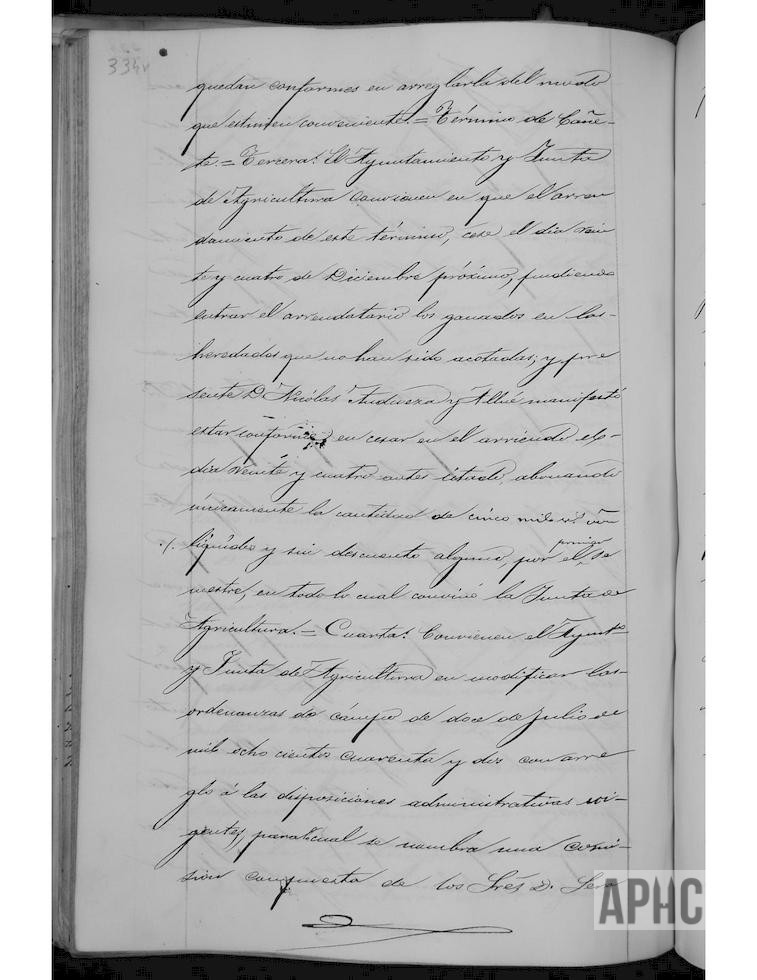 334v
quedan conformes en arreglarla del modo
que estimen conveniente.= Término de Cañe-
te.= Tercera. El Ayuntamiento y Junta
de Agricultura convienen en que el arren
damiento de este término, cese el dia vein
te y cuatro de Diciembre próximo, pudiendo
entrar el arrendatario los ganados en las-
heredades que no han sido acotadas; y pre
sente D. Nicólas Andueza y Allué manifestó
estar conforme en cesar en el arriendo el-
dia veinte y cuatro antes citado, abonando
únicamente la cantidad de cinco mil r.s v.on
liquidos y sin descuento alguno, por el primer se
mestre, en todo lo cual convino la Junta de
Agricultura.= Cuarta. Convienen el Ayunt.o
y Junta de Agricultura en modificar las-
ordenanzas de cámpo de doce de Julio de
mil ocho cientos cuarenta y dos con arre
glo á las disposiciones administrativas vi-
gentes, para lo cual se nombra una comi-
sion compuesta de los Srés D.
APHC